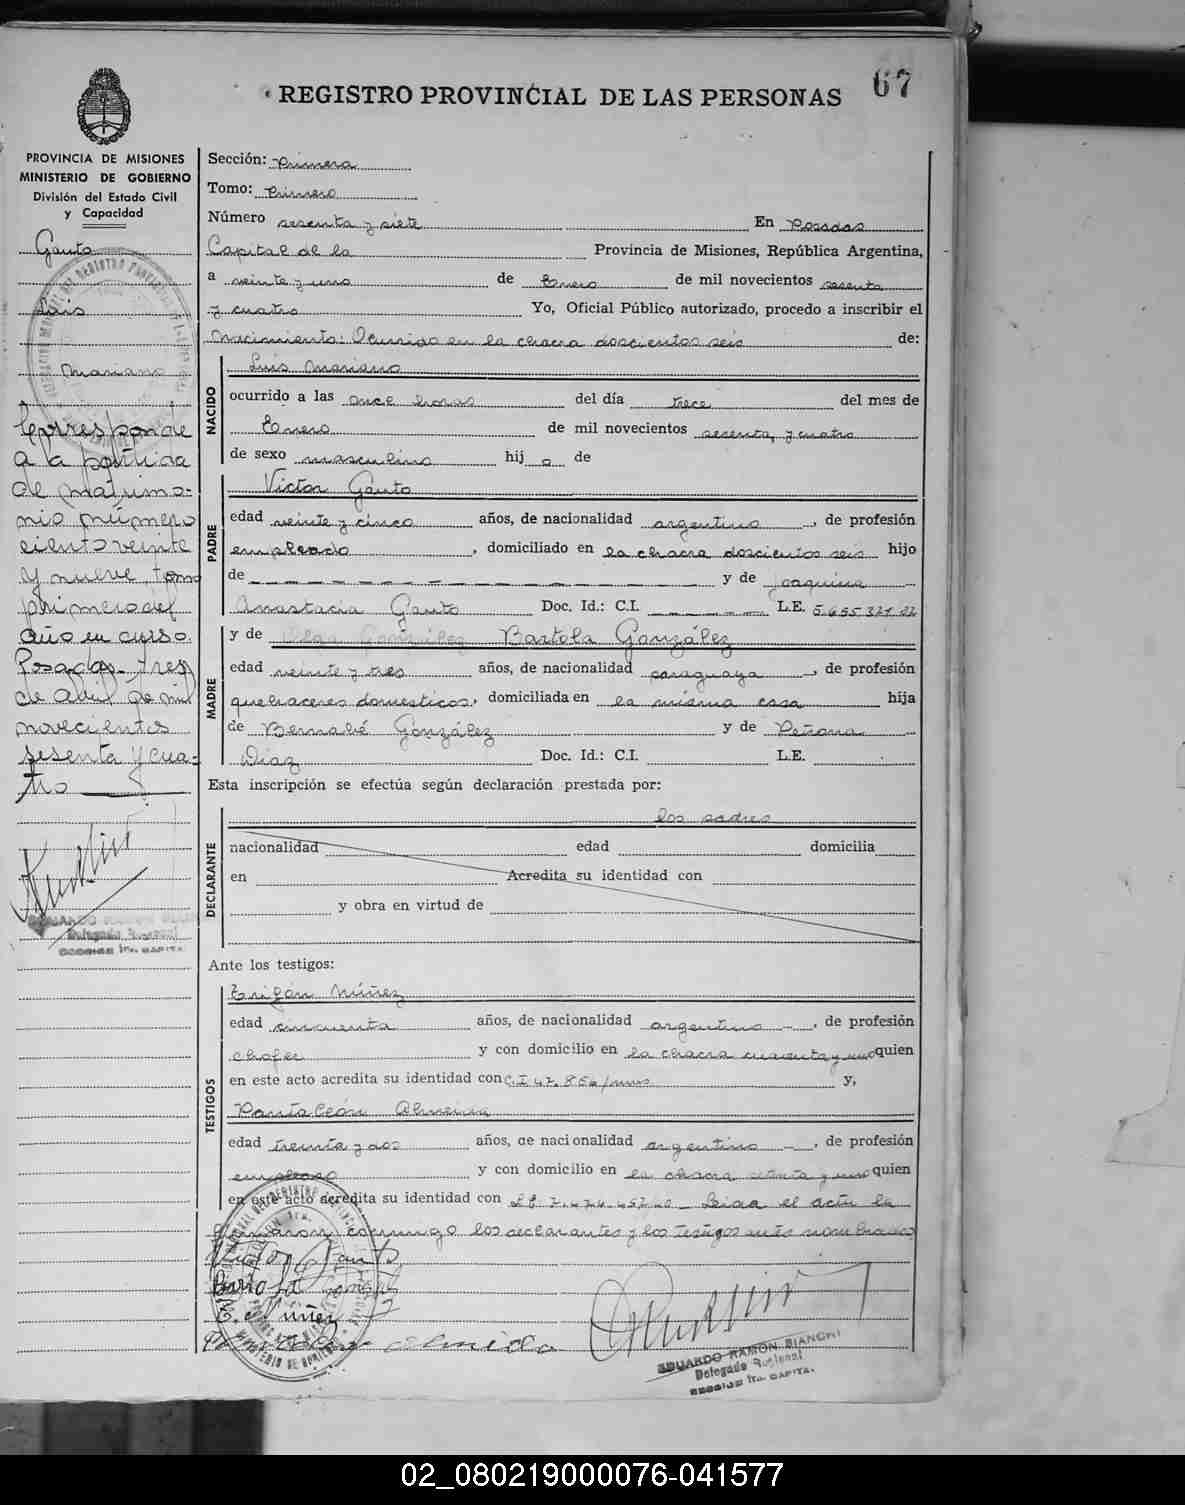 67
REGISTRO PROVINCIAL DE LAS PERSONAS
PROVINCIA DE MISIONES
MINISTERIO DE GOBIERNO
División del Estado Civil
y Capacidad
Gauto
Luis
Mariano
Corresponde
a la partida
de matrimo-
nio número
ciento veinte
y nueve, tomo
primero del
año en curso.
Posadas, tres
de Abril de mil
novecientos
sesenta y cua-
tro
Sección: Primera
Tomo: Primero
Número sesenta y siete En Posadas
Capital de la Provincia de Misiones, República Argentina,
a veinte y uno de Enero de mil novecientos sesenta
y cuatro Yo, Oficial Público autorizado, procedo a inscribir el
Nacimiento: Ocurrido en la chacra doscientos seis de:
NACIDO
Luis Mariano
ocurrido a las once horas del día trece del mes de
Enero de mil novecientos sesenta y cuatro
de sexo masculino hij o de
PADRE
Victor Gauto
edad veinte y cinco años, de nacionalidad argentino -, de profesión
empleado, domiciliado en la chacra doscientos seis hijo
de - - - - - - y de Joaquina
Anastacia Gauto Doc. Id.: C.I. - - - - - L.E. 5.655.321.22
MADRE
y de Bartola González
edad veinte y tres años, de nacionalidad paraguaya -, de profesión
quehaceres domesticos, domiciliada en la misma casa hija
de Bernabé González y de Petrona
Diaz Doc. Id.: C.I. L.E.
Esta inscripción se efectúa según declaración prestada por:
DECLARANTE
los padres
nacionalidad edad domicilia
en Acredita su identidad con
y obra en virtud de
Ante los testigos:
TESTIGOS
Trifón Núñez
edad cincuenta años, de nacionalidad argentino -, de profesión
chofer y con domicilio en la chacra cuarenta y uno quien
en este acto acredita su identidad con C.I 47.856/ y,
Pantaleón Almeida
edad treinta y dos años, de nacionalidad argentino -, de profesión
empleado y con domicilio en la chacra setenta y uno quien
en este acto acredita su identidad con Leida el acta la
firmaron conmigo los declarantes y los testigos antes nombrados
Victor Gauto
Bartola Gonzalez
T. Núñez
Almeida
EDUARDO RAMON BIANCHI
Delegado Regional
SECCION 1ra. CAPITAL
02_080219000076-041577